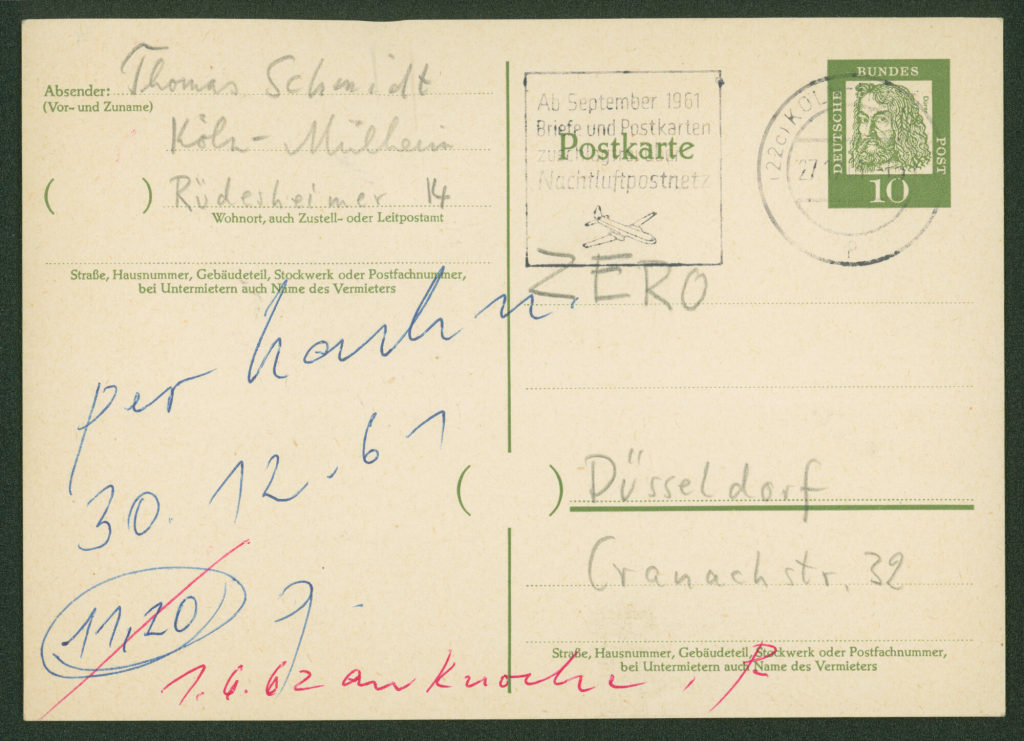 Absender: Thomas Schmidt
(Vor- und Zuname)
Köln-Mülheim
( ) Rüdesheimer 14
Wohnort, auch Zustell- oder Leitpostamt
Straße, Hausnummer, Gebäudeteil, Stockwerk oder Postfachnummer,
bei Untermietern auch Name des Vermieters
per Nachn.
30.12.61
11,20
1.4.62 an Knoche
Ab September 1961
Briefe und Postkarten
Nachtluftpostnetz
Postkarte
(22c) KÖL
27.
DEUTSCHE
BUNDES
POST
10
ZERO
( ) Düsseldorf
Cranachstr. 32
Straße, Hausnummer, Gebäudeteil, Stockwerk oder Postfachnummer,
bei Untermietern auch Name des Vermieters